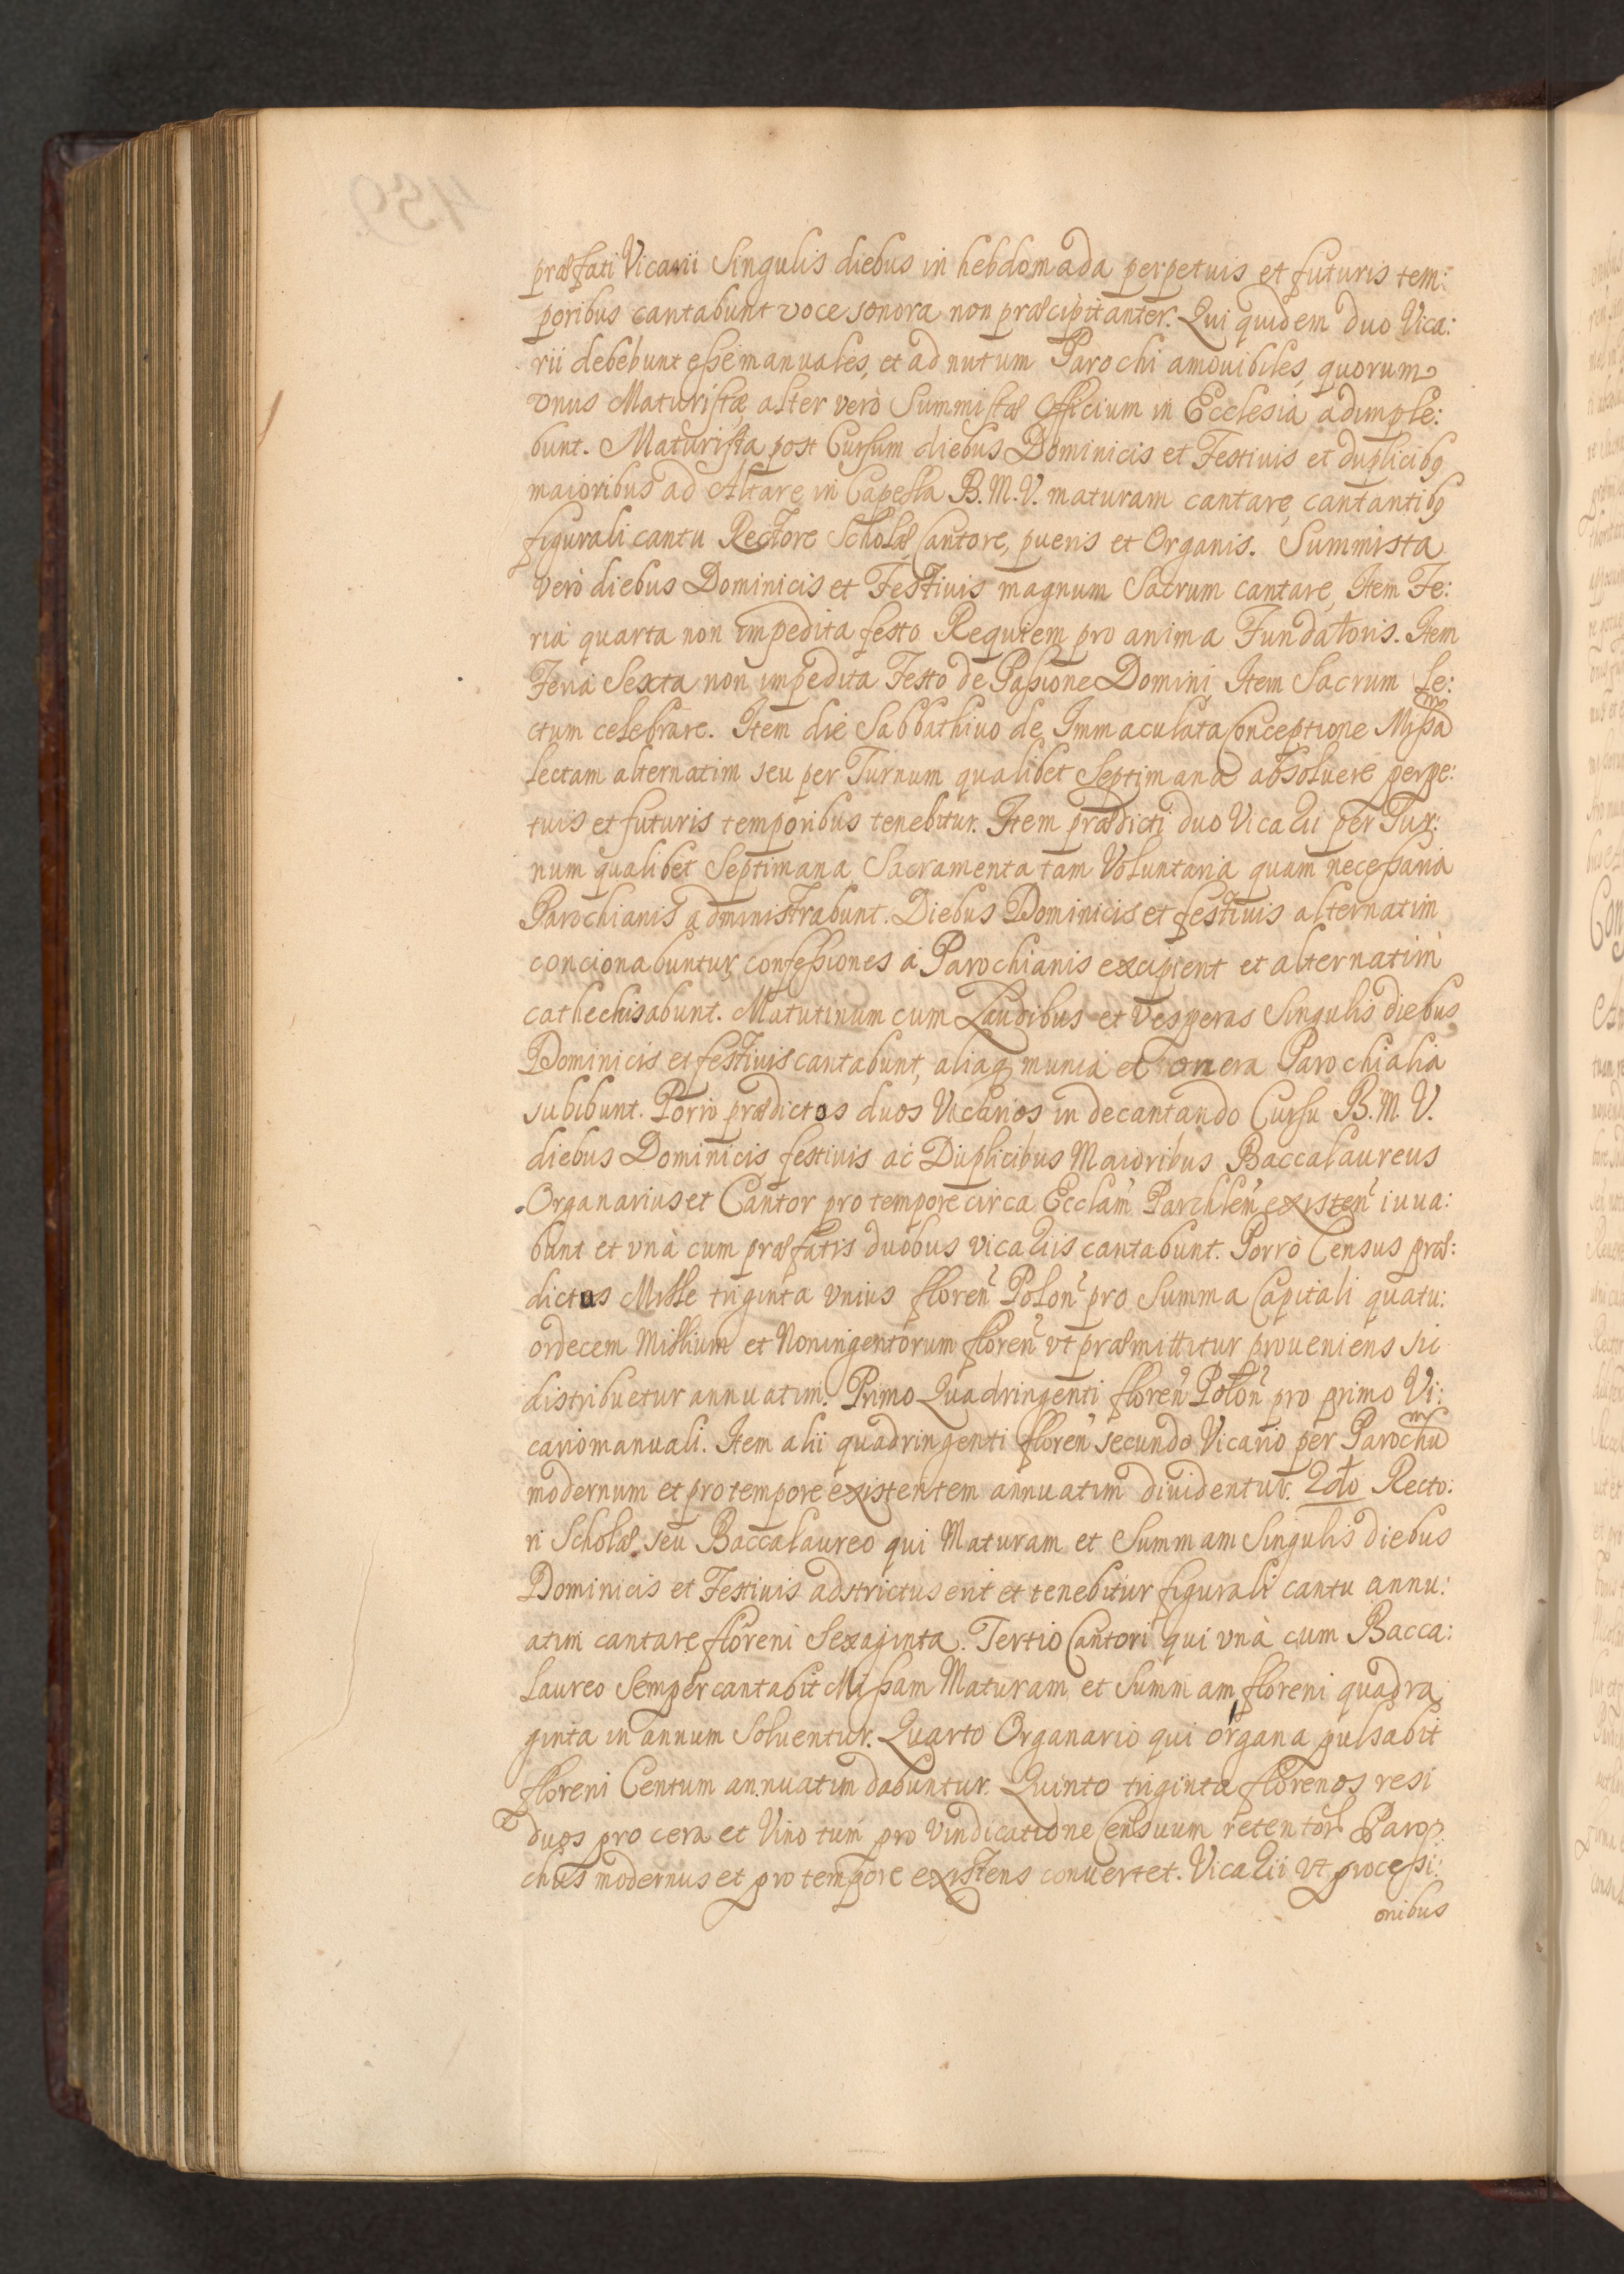 præfati Vicarii Singulis diebus in hebdomada perpetuis et futuris tem:
poribus cantabunt voce sonora non præcipitanter. Qui quidem duo Vica:
rii debebunt esse manuales, et ad nutum Parochi amouibiles, quorum
vnus Maturistæ alter verò Summistæ Officium in Ecclesia adimple:
bunt. Maturista post Cursum diebus Dominicis et Festiuis et duplicibq
maioribus ad Altare in Capella B. M. V. maturam cantare, cantantibq
figurali cantu Rectore Scholæ Cantore, pueris et Organis. Summista
verò diebus Dominicis et Festiuis magnum Sacrum cantare, Item Fe:
ria quarta non impedita festo Requiem pro anima Fundatoris. Item
Feria Sexta non impedita Festo de Passione Domini Item Sacrum Le:
ctum celebrare. Item die Sabbathiuo de Immaculata Conceptione Missam
lectam alternatim seu per Turnum qualibet Septimana absoluere perpe:
tuis et futuris temporibus tenebitur. Item prædicti duo Vicarii per Tur:
num qualibet Septimana Sacramenta tam Voluntaria quam necessaria
Parochianis administrabunt. Diebus Dominicis et festiuis alternatim
concionabuntur, confessiones à Parochianis excipient et alternatim
cathechisabunt. Matutinum cum Laudibus et Vesperas Singulis diebus
Dominicis et festiuis cantabunt, aliaq munia et onera Parochialia
subibunt. Porrò prædictos duos Vicarios in decantando Cursu B. M. V.
diebus Dominicis festiuis ac Duplicibus Maioribus Baccalaureus
Organarius et Cantor pro tempore circa Ecclam Parchlem existen iuua:
bunt et vnà cum præfatis duobus vicariis cantabunt. Porrò Census præ:
dictus Mille triginta vnius floren Polon pro Summa Capitali quatu:
ordecem Millium et Noningentorum floren vt præmittitur proueniens sic
distribuetur annuatim. Primo Quadringenti floren Polon pro primo Vi:
cario manuali. Item alii quadringenti floren secundo Vicario per Parochum
modernum et pro tempore existentem annuatim diuidentur. 2do Recto:
ri Scholæ seu Baccalaureo qui Maturam et Summam Singulis diebus
Dominicis et Festiuis adstrictus erit et tenebitur figurali cantu annu:
atim cantare floreni Sexaginta. Tertio Cantori qui vnà cum Bacca:
laureo Semper cantabit Missam Maturam et Summam floreni quadra
ginta in annum Soluentur. Quarto Organario qui organa pulsabit
floreni Centum annuatim dabuntur. Quinto triginta florenos resi
duos pro cera et Vino tum pro vindicatione Censuum retentor Paro
chus modernus et pro tempore existens conuertet. Vicarii vt processi:
onibus